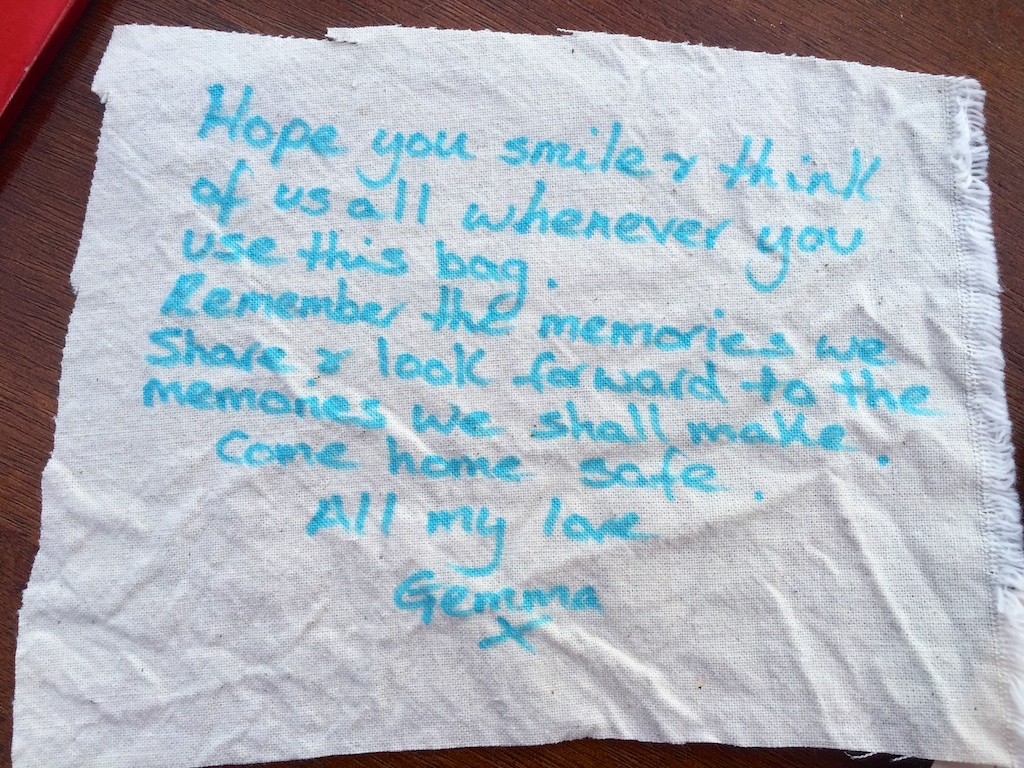 Hope you smile & think
of us all whenever you
use this bag.
Remember the memories we
Share & look forward to the
memories we shall make.
Come home safe.
All my love
Gemma
X